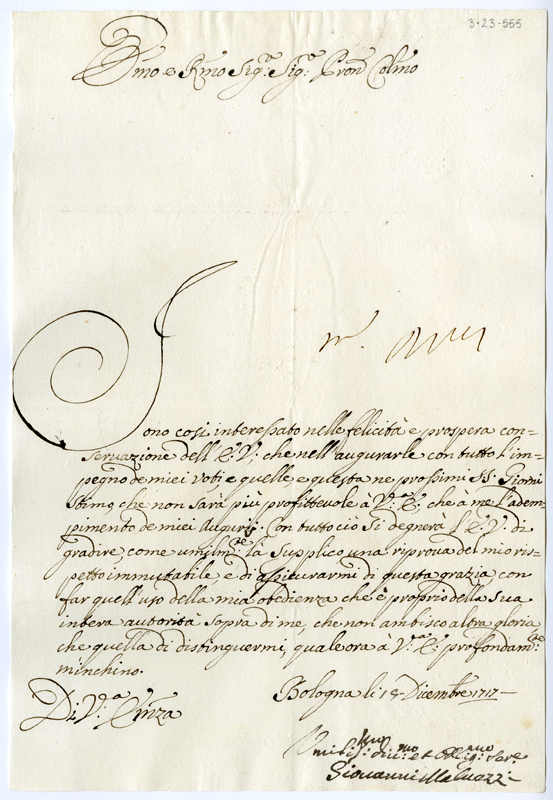 3-23-555
Emo e Rmo Sig:re Sig:re Pron Colmo
Sono così interessato nelle felicità e prospera con=
servazione dell'E: V: che nell'augurarle con tutto l'im=
pegno de miei voti e quelle, e questa ne prossimi SS: Giorni
stimo che non sarà più profittevole à V:ra E:, che à me l'adem=
pimento de miei augurij: Con tutto ciò si degnerà l'E: V: di
gradire, come umilm:te la supplico una riprova del mio ris=
petto immutabile, e di assicurarmi di questa grazia con
far quell'uso della mia obedienza che è proprio della sua
intera autorità sopra di me, che non ambisco altra gloria
che quella di distinguermi, quale ora à V:ra E: profondam:te
m'inchino.
Bologna li 18 Dicembre 1717
Di V:ra Emza
Umilis:mo di:mo et Oblig:mo Ser:e
Giovanni Malvezzi